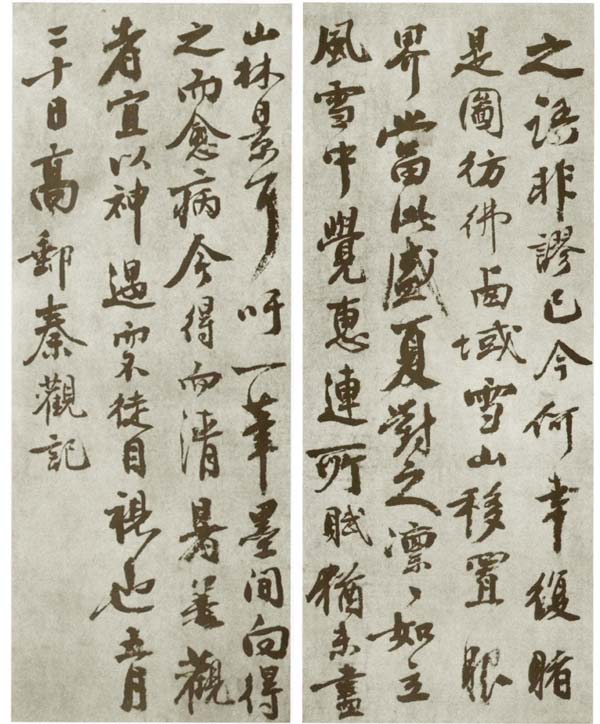 之語非謬已今何幸復睹
是圖彷彿卥域雪山移置眼
界當此盛夏對之凛〻如立
風雪中覺惠連所賦猶未盡
山林景耳吁一筆墨間向得
之而愈病今得而清暑善觀
者宜以神遇而不徒目視也五月
二十日高郵秦觀記